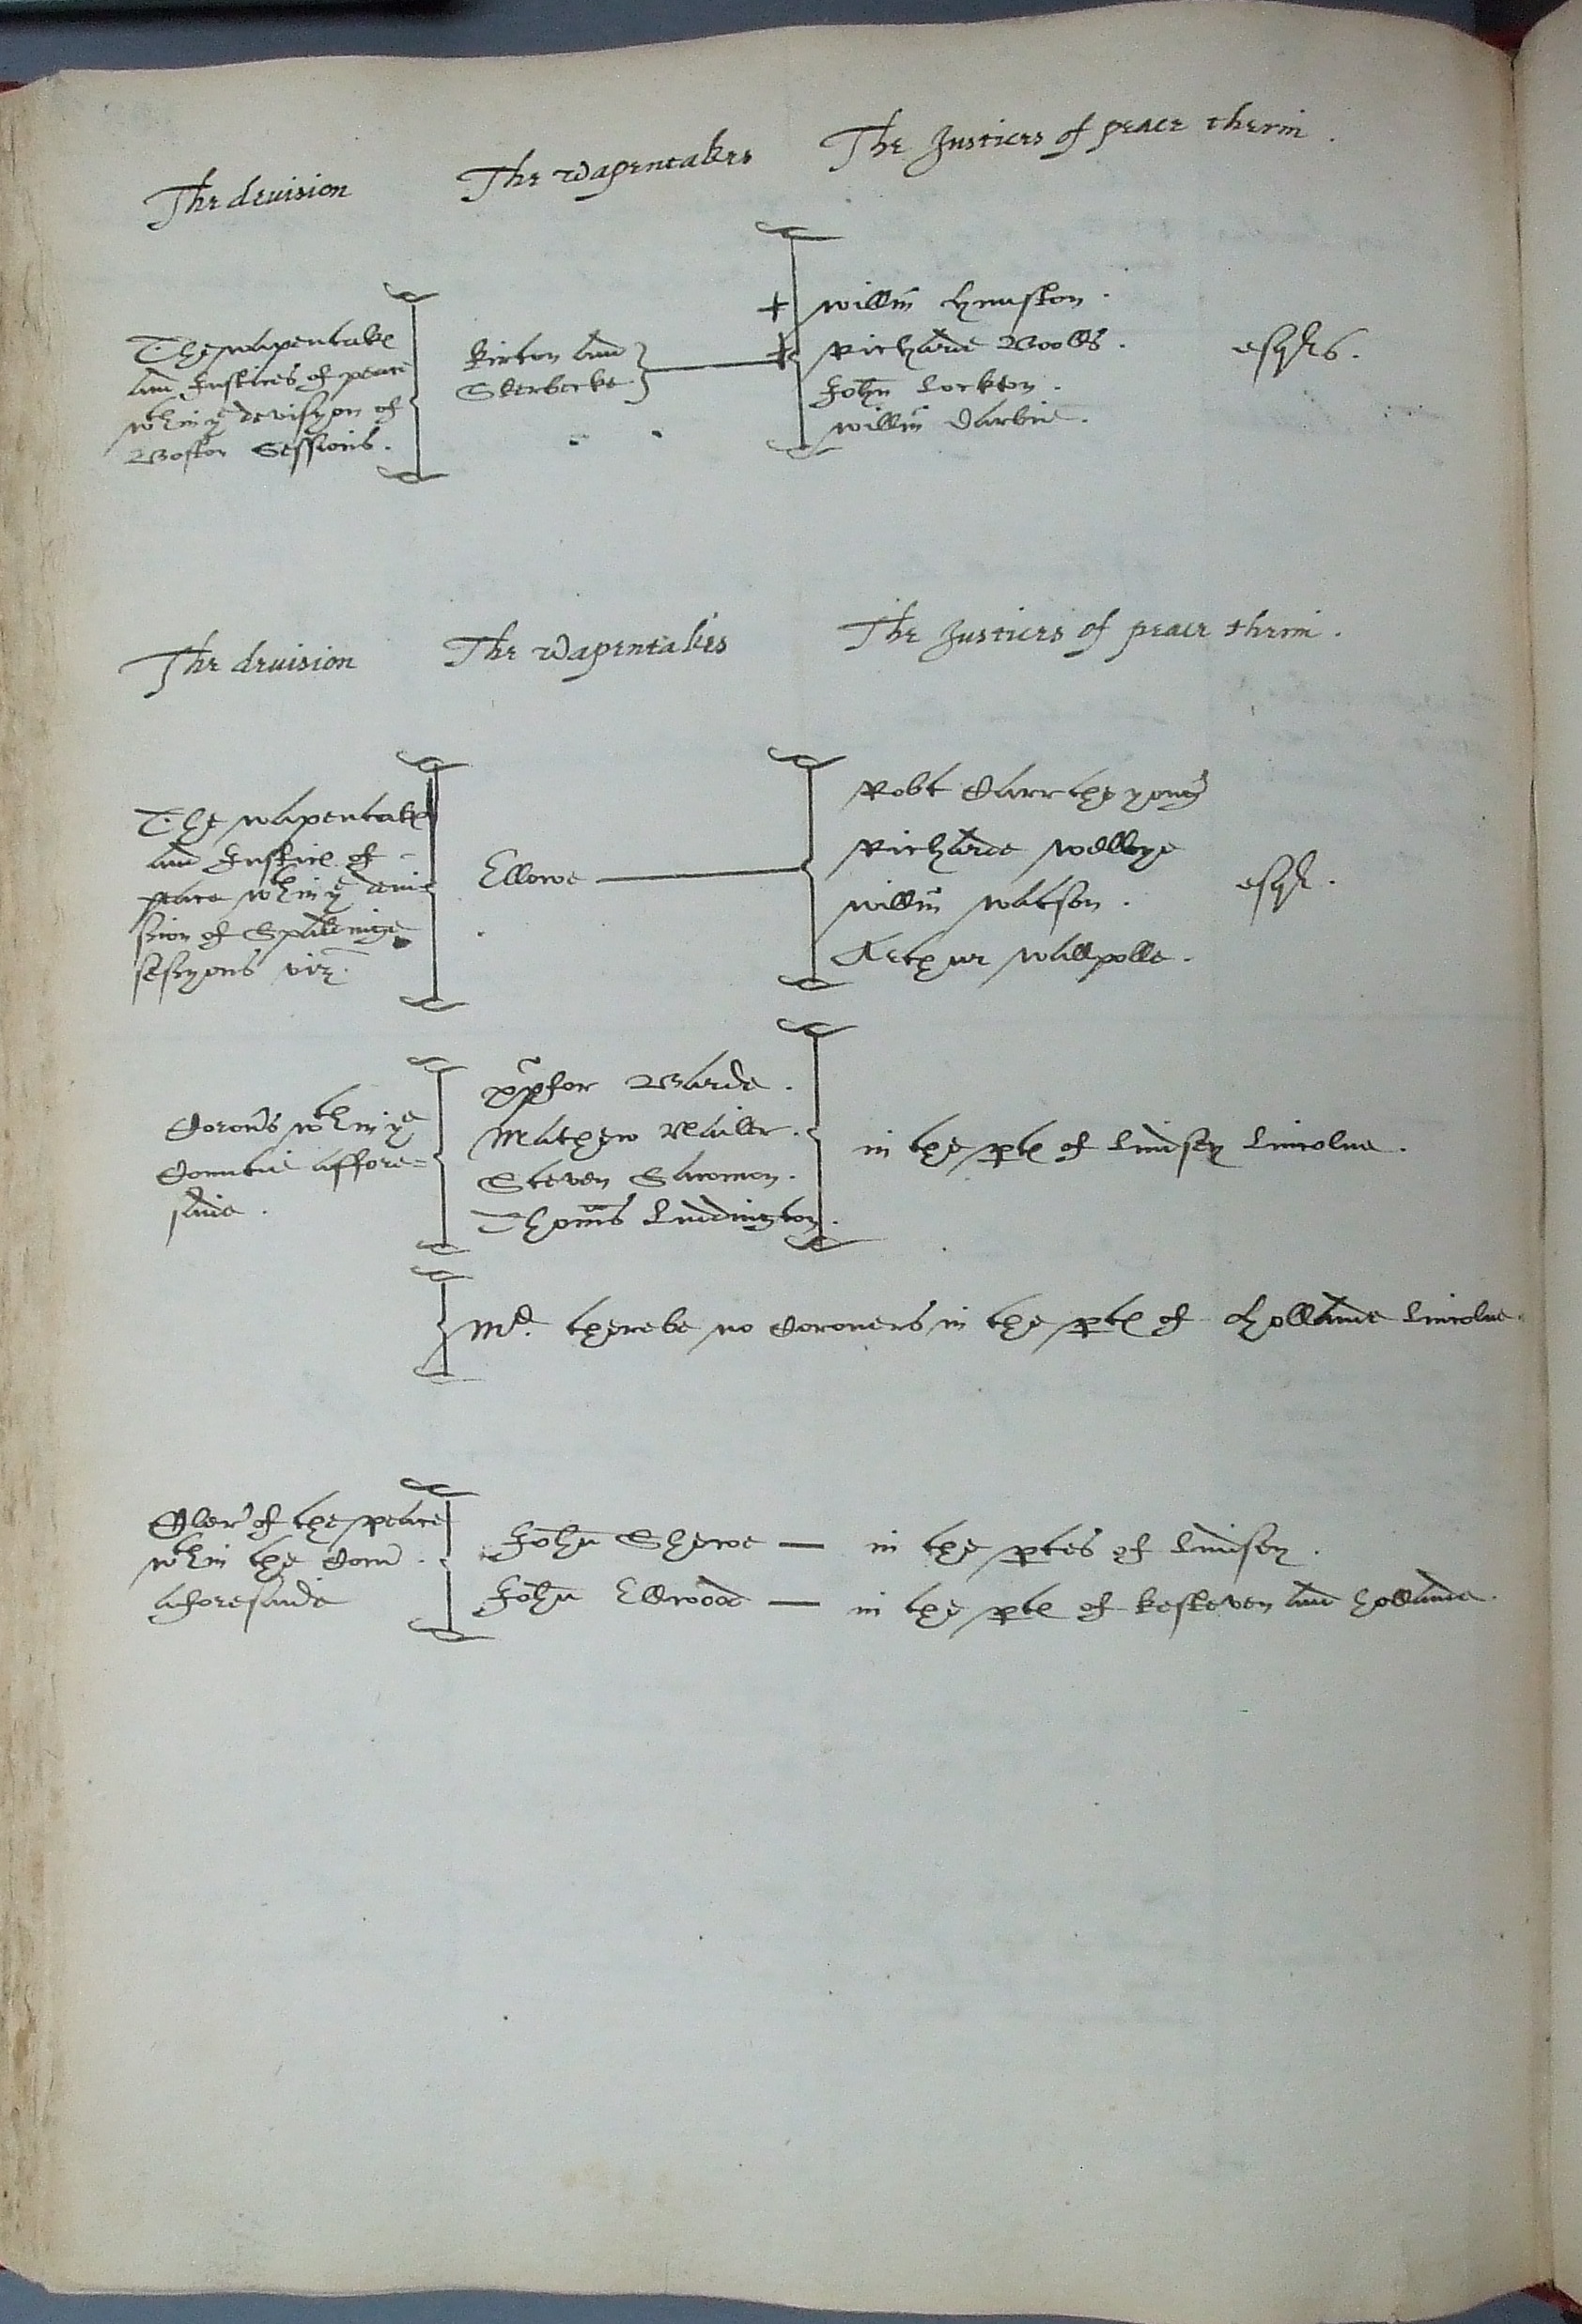 The deuision
The wapentakes
The Justices of peace therin .
The wapentake
and Justices of peace
wthin ye devisyon of
Boston Sessions .
Kirton and
Skerbecke
+ willm̃
+ Richarde Bolls .
John Lockton .
willm̃ Darbie .
esqrs .
The deuision
The wapentakes
The Justices of peace therin .
The wapentake
and Justice of
peace wthin ye deui-
sion of Spaldinge
sessyons viz.
Ellowe
Robt Carr the yong
Richarde Welbye
willm̃ watson .
Arthur wallpolle .
esqr .
Coron's wthin ye
Countie affore=
saide .
xp̃ofor Warde .
Mathew
Steven Slawmon .
Thom̃s Luddington .
in the ptes of Lindsey Lincolne .
Md. there be no Coroners in the ptes of Hollande Lincolne .
Cler' of the peace
wthin the Com' .
aforesaide
John Shewe — in the ptes of Lindsey .
John Ellwood — in the ptes of Kesteven and hollande .